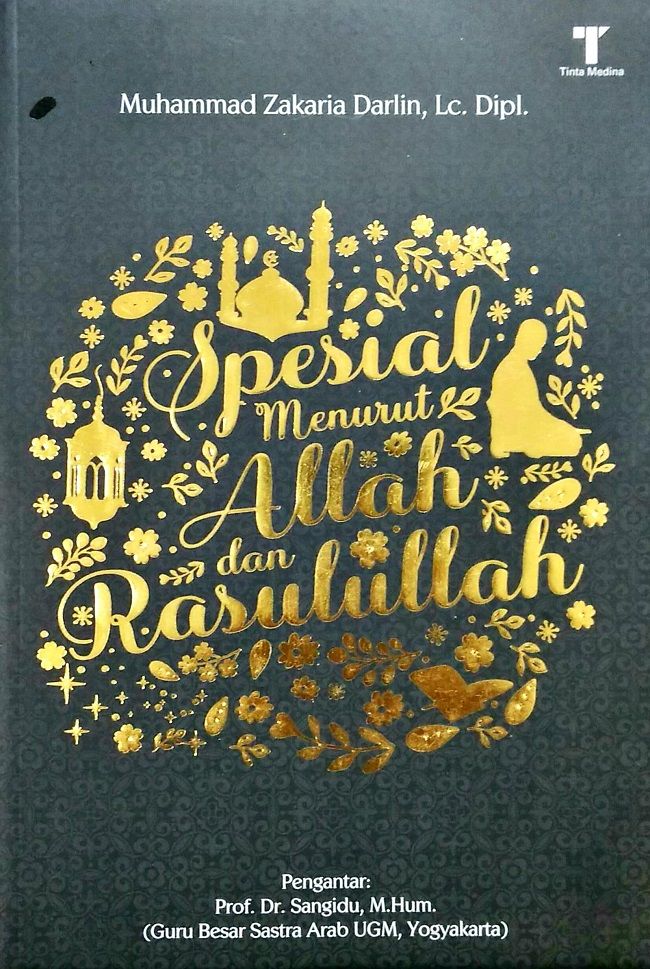 Tinta Medina
Muhammad Zakaria Darlin, Lc. Dipl.
Spesial
Menurut
Allah
dan
Rasulullah
Pengantar:
Prof. Dr. Sangidu, M.Hum.
(Guru Besar Sastra Arab UGM, Yogyakarta)